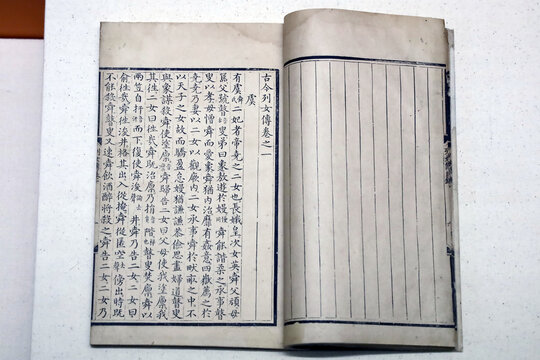 古今列女傳卷之一
虞
有虞二妃者帝堯之二女也長娥皇次女英舜父頑母
嚚父號瞽叟弟曰象敖遊於嫚舜能諧柔之承事瞽
叟以孝母憎舜而愛象舜猶內治靡有姦意四嶽薦之於
堯堯乃妻以二女以觀厥內二女承事舜於畎畝之中不
以天子之女故而驕盈怠嫚猶謙謙恭儉思盡婦道瞽叟
與象謀殺舜使塗廩舜歸告二女曰父母使我塗廩我
其往二女曰往哉舜既治廩乃捐階瞽叟焚廩舜以
兩笠自扞而下復使舜浚井舜乃告二女二女曰
俞往哉舜往浚井格其出入從掩舜從匿空傍出時既
不能殺舜瞽叟又速舜飲酒醉將殺之舜告二女二女乃